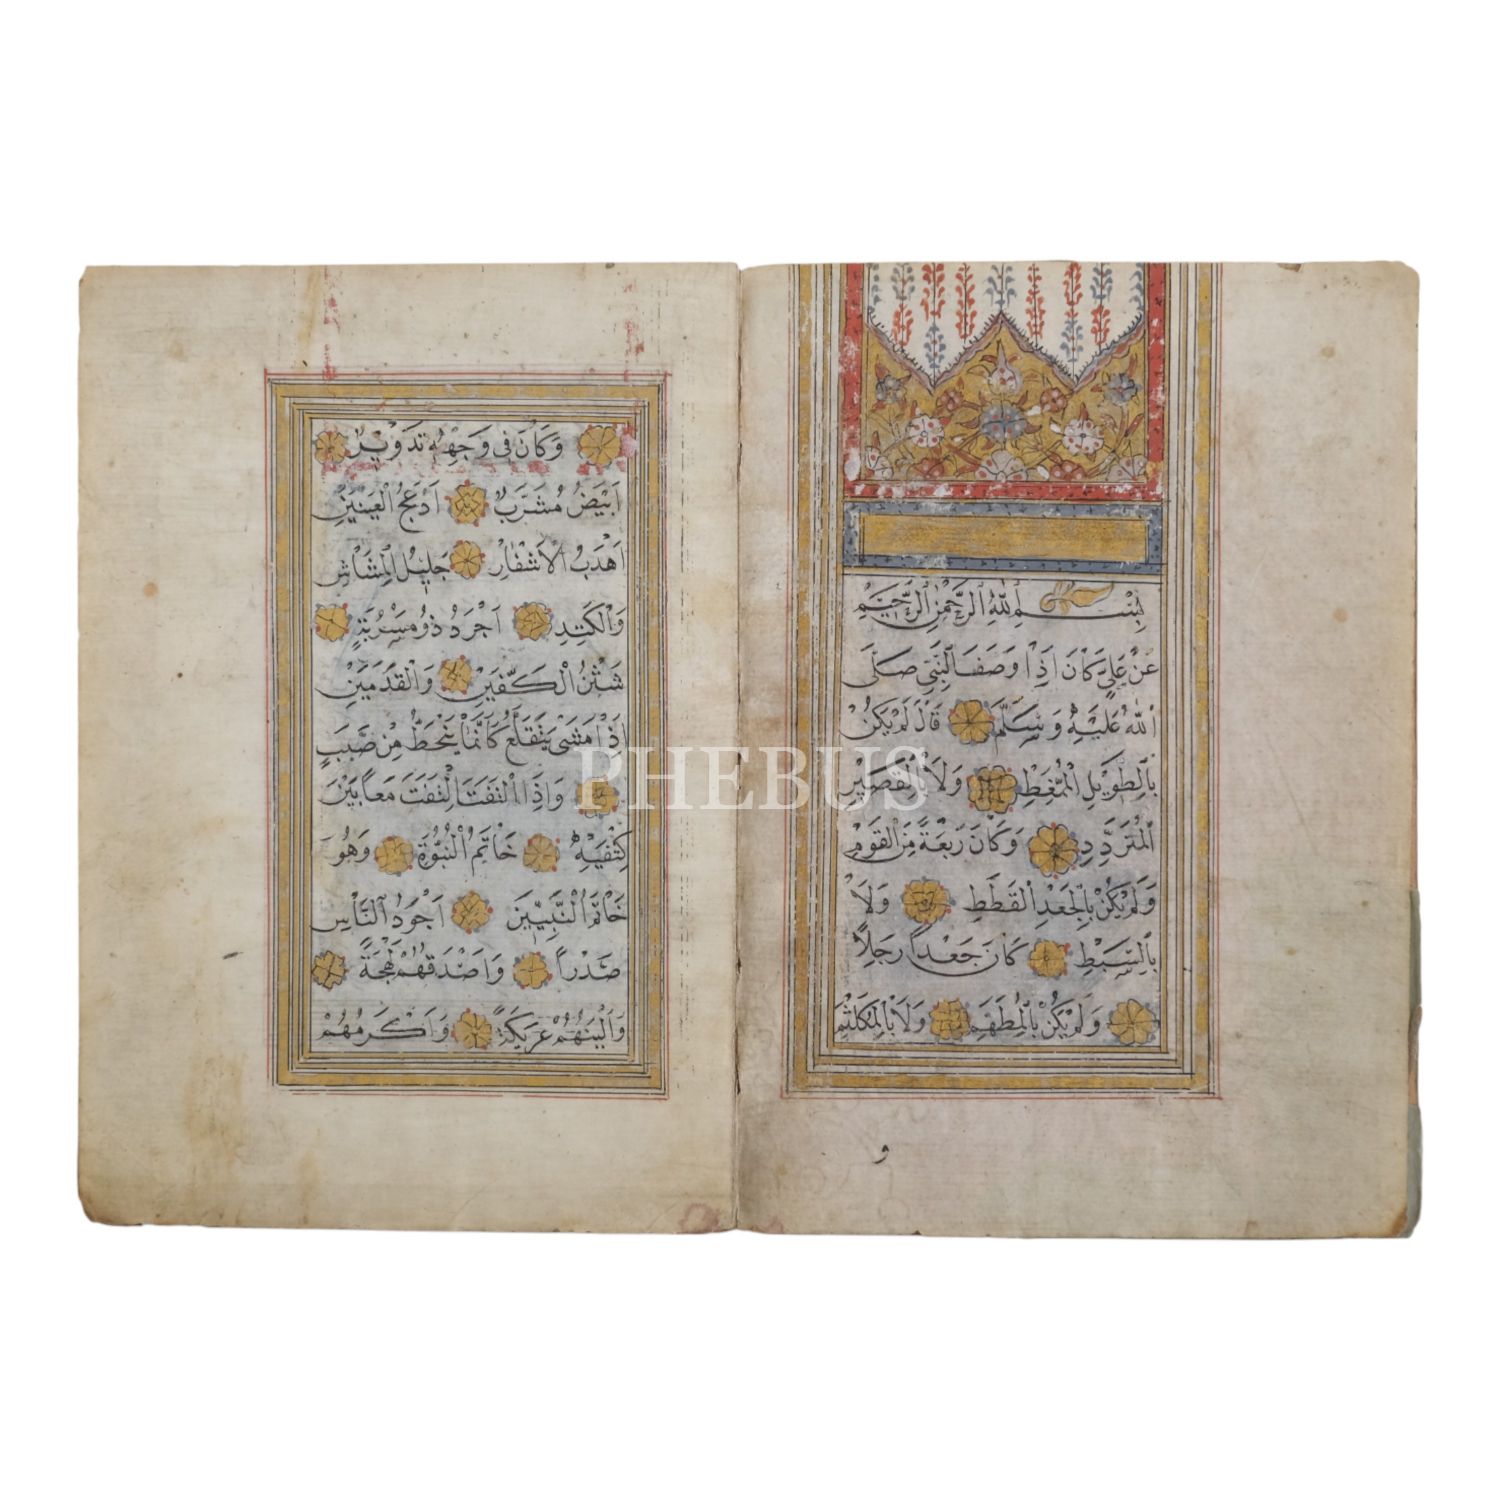 بِسْمِ اللّٰهِ الرَّحْمٰنِ الرَّحِيْمِ
عَنْ عَلِيٍّ كَانَ اِذَا وَصَفَ النَّبِيَّ صَلَّى
اللّٰهُ عَلَيْهِ وَسَلَّمَ قَالَ لَمْ يَكُنْ
بِالطَّوِيْلِ الْمُمَّغِطِ وَلَا بِالْقَصِيْرِ
الْمُتَرَدِّدِ وَكَانَ رَبْعَةً مِنَ الْقَوْمِ
وَلَمْ يَكُنْ بِالْجَعْدِ الْقَطَطِ وَلَا
بِالسَّبِطِ كَانَ جَعْدًا رَجِلًا
وَلَمْ يَكُنْ بِالْمُطَهَّمِ وَلَا بِالْمُكَلْثَمِ
و
وَكَانَ فِي وَجْهِهِ تَدْوِيْرٌ
اَبْيَضُ مُشْرَبٌ اَدْعَجُ الْعَيْنَيْنِ
اَهْدَبُ الْاَشْفَارِ جَلِيْلُ الْمُشَاشِ
وَالْكَتَدِ اَجْرَدُ ذُو مَسْرُبَةٍ
شَثْنُ الْكَفَّيْنِ وَالْقَدَمَيْنِ
اِذَا مَشَى يَتَقَلَّعُ كَاَنَّمَا يَنْحَطُّ مِنْ صَبَبٍ
وَاِذَا الْتَفَتَ الْتَفَتَ مَعًا بَيْنَ
كِتْفَيْهِ خَاتَمُ النُّبُوَّةِ وَهُوَ
خَاتَمُ النَّبِيِّيْنَ اَجْوَدُ النَّاسِ
صَدْرًا وَاَصْدَقُهُمْ لَهْجَةً
وَاَلْيَنُهُمْ عَرِيْكَةً وَاَكْرَمُهُمْ
PHEBUS